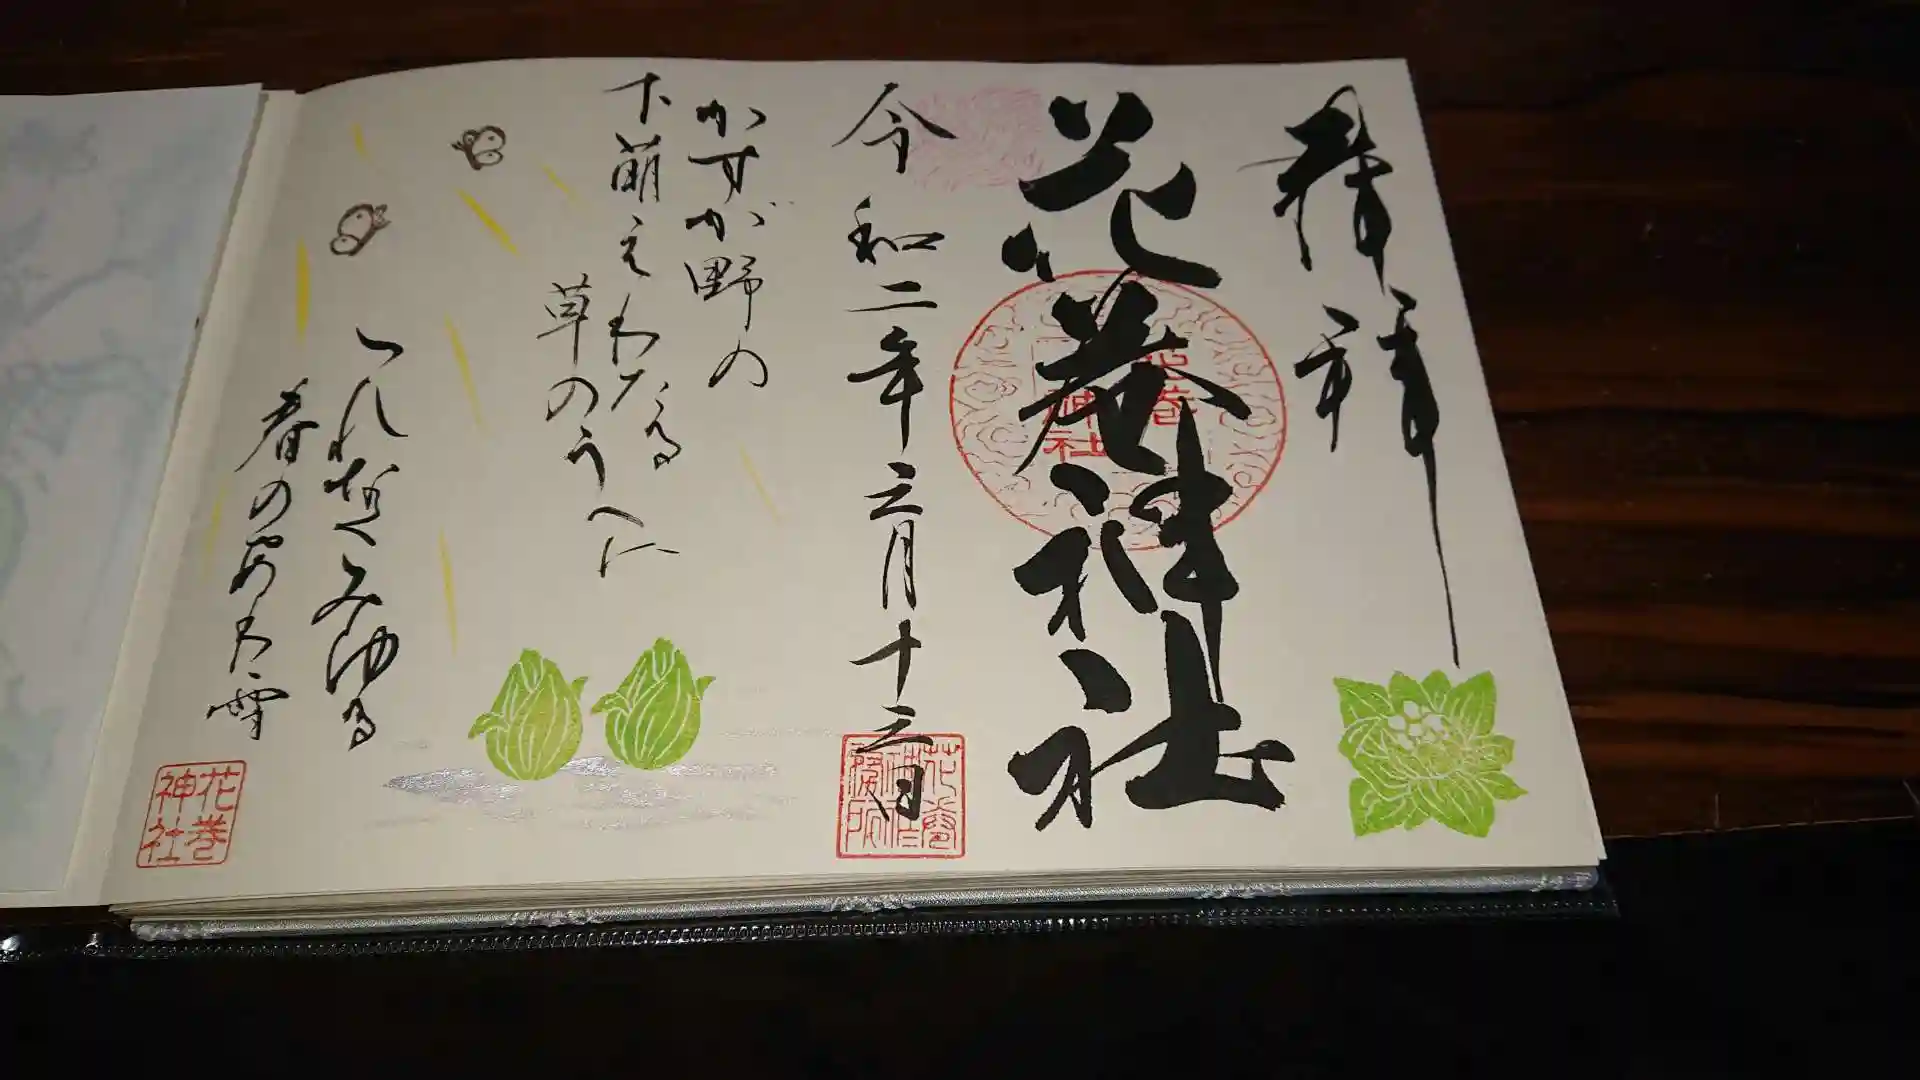 拝
花巻神社
花巻
神社
令和二年三月十三日
花巻
神社
務所
かすが野の
下萌えわたる
草のうへに
つれなくみゆる
春のあわ雪
花巻
神社